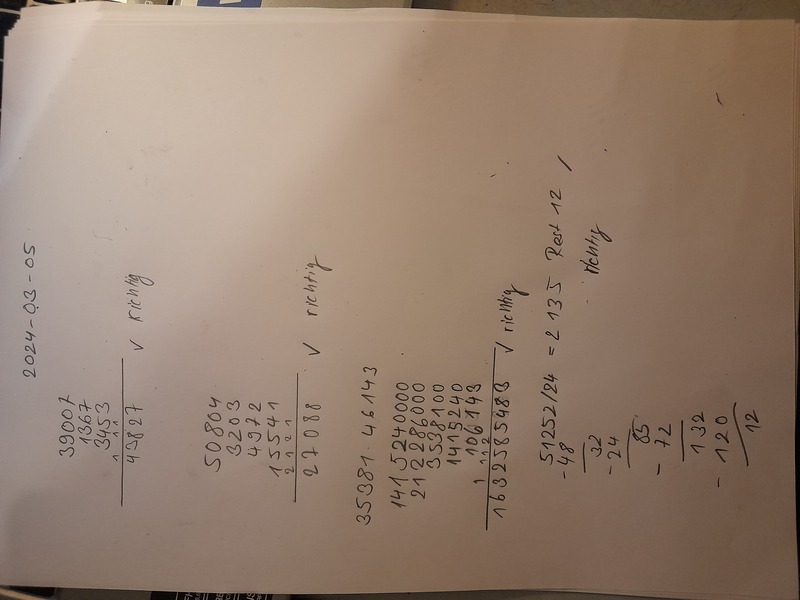 2024-03-05
39007
1367
3453
1 1 1
43827 √ richtig
50804
3203
4972
15541
2 1 2 1
27088 √ richtig
35381 · 46143
1415240000
212286000
3538100
1415240
106143
1 1 1 2
1632585483 √ richtig
51252/24 = 2135 Rest 12 /
-48 richtig
32
- 24
85
- 72
132
- 120
12